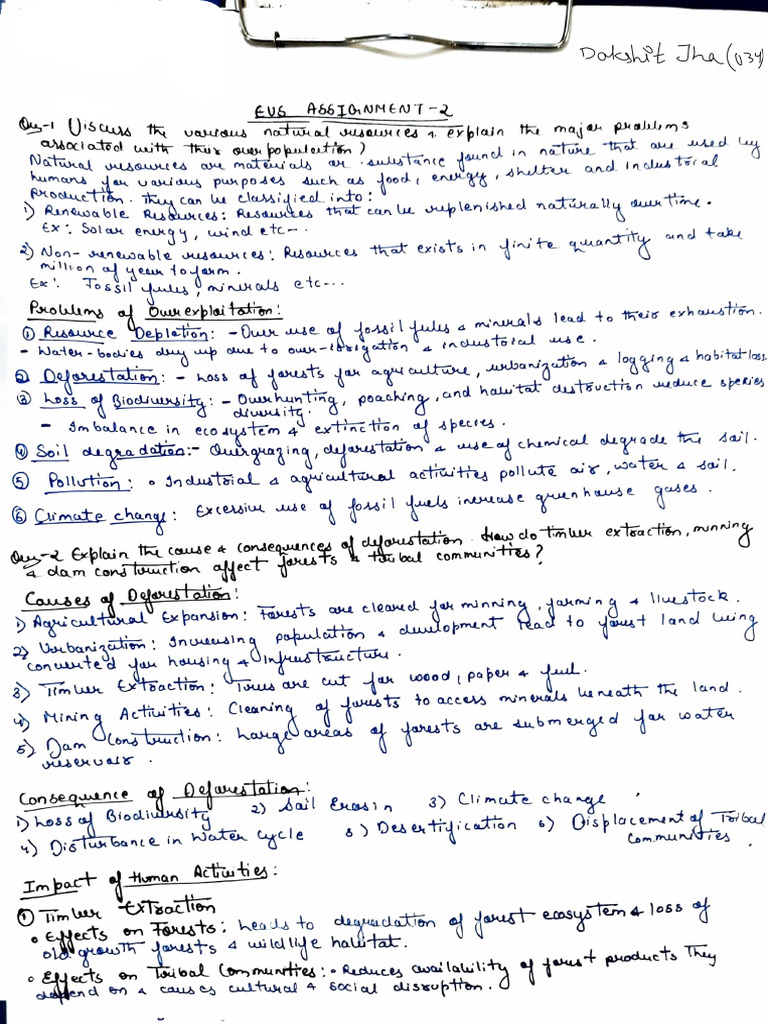 Dakshit Jha (034)
EVS ASSIGNMENT-2
Que-1 Discuss the various natural resources & explain the major problems
associated with their overpopulation)
Natural resources are materials or substance found in nature that are used by
humans for various purposes such as food, energy, shelter and industrial
production. They can be classified into:
1) Renewable Resources: Resources that can be replenished naturally over time.
Ex: Solar energy, wind etc--.
2) Non-renewable resources: Resources that exists in finite quantity and take
million of year to form.
Ex: Fossil fules, minerals etc---
Problems of Overexploitation:
① Resource Depletion: - Over use of fossil fules & minerals lead to their exhaustion.
- Water-bodies dry up due to over-irrigation & industrial use.
② Deforestation: - Loss of forests for agriculture, urbanization & logging & habitat loss.
③ Loss of Biodiversity: - Overhunting, poaching, and habitat destruction reduce species
diversity.
- Imbalance in ecosystem & extinction of species.
④ Soil degradation:- Overgrazing, deforestation & use of chemical degrade the soil.
⑤ Pollution: • Industrial & agricultural activities pollute air, water & soil.
⑥ Climate change: Excessive use of fossil fuels increase greenhouse gases.
Que-2 Explain the cause & consequences of deforestation. How do timber extraction, minning
& dam construction affect forests & tribal communities?
Causes of Deforestation:
1) Agricultural Expansion: Forests are cleared for minning, farming & livestock.
2) Urbanization: Increasing population & development lead to forest land being
converted for housing & infrastructure.
3) Timber Extraction: Trees are cut for wood, paper & fuel.
4) Mining Activities: Cleaning of forests to access minerals beneath the land.
5) Dam Construction: Large areas of forests are submerged for water
reservoir.
Consequence of Deforestation:
1) Loss of Biodiversity 2) Soil Erosin 3) Climate change
4) Disturbance in Water cycle 5) Desertification 6) Displacement of Tribal
communities.
Impact of Human Activities:
① Timber Extraction
• Effects on Forests: Leads to degradation of forest ecosystem & loss of
old growth forests & wildlife habitat.
• Effects on Tribal Communities: • Reduces availability of forest products they
depend on & causes cultural & social disruption.